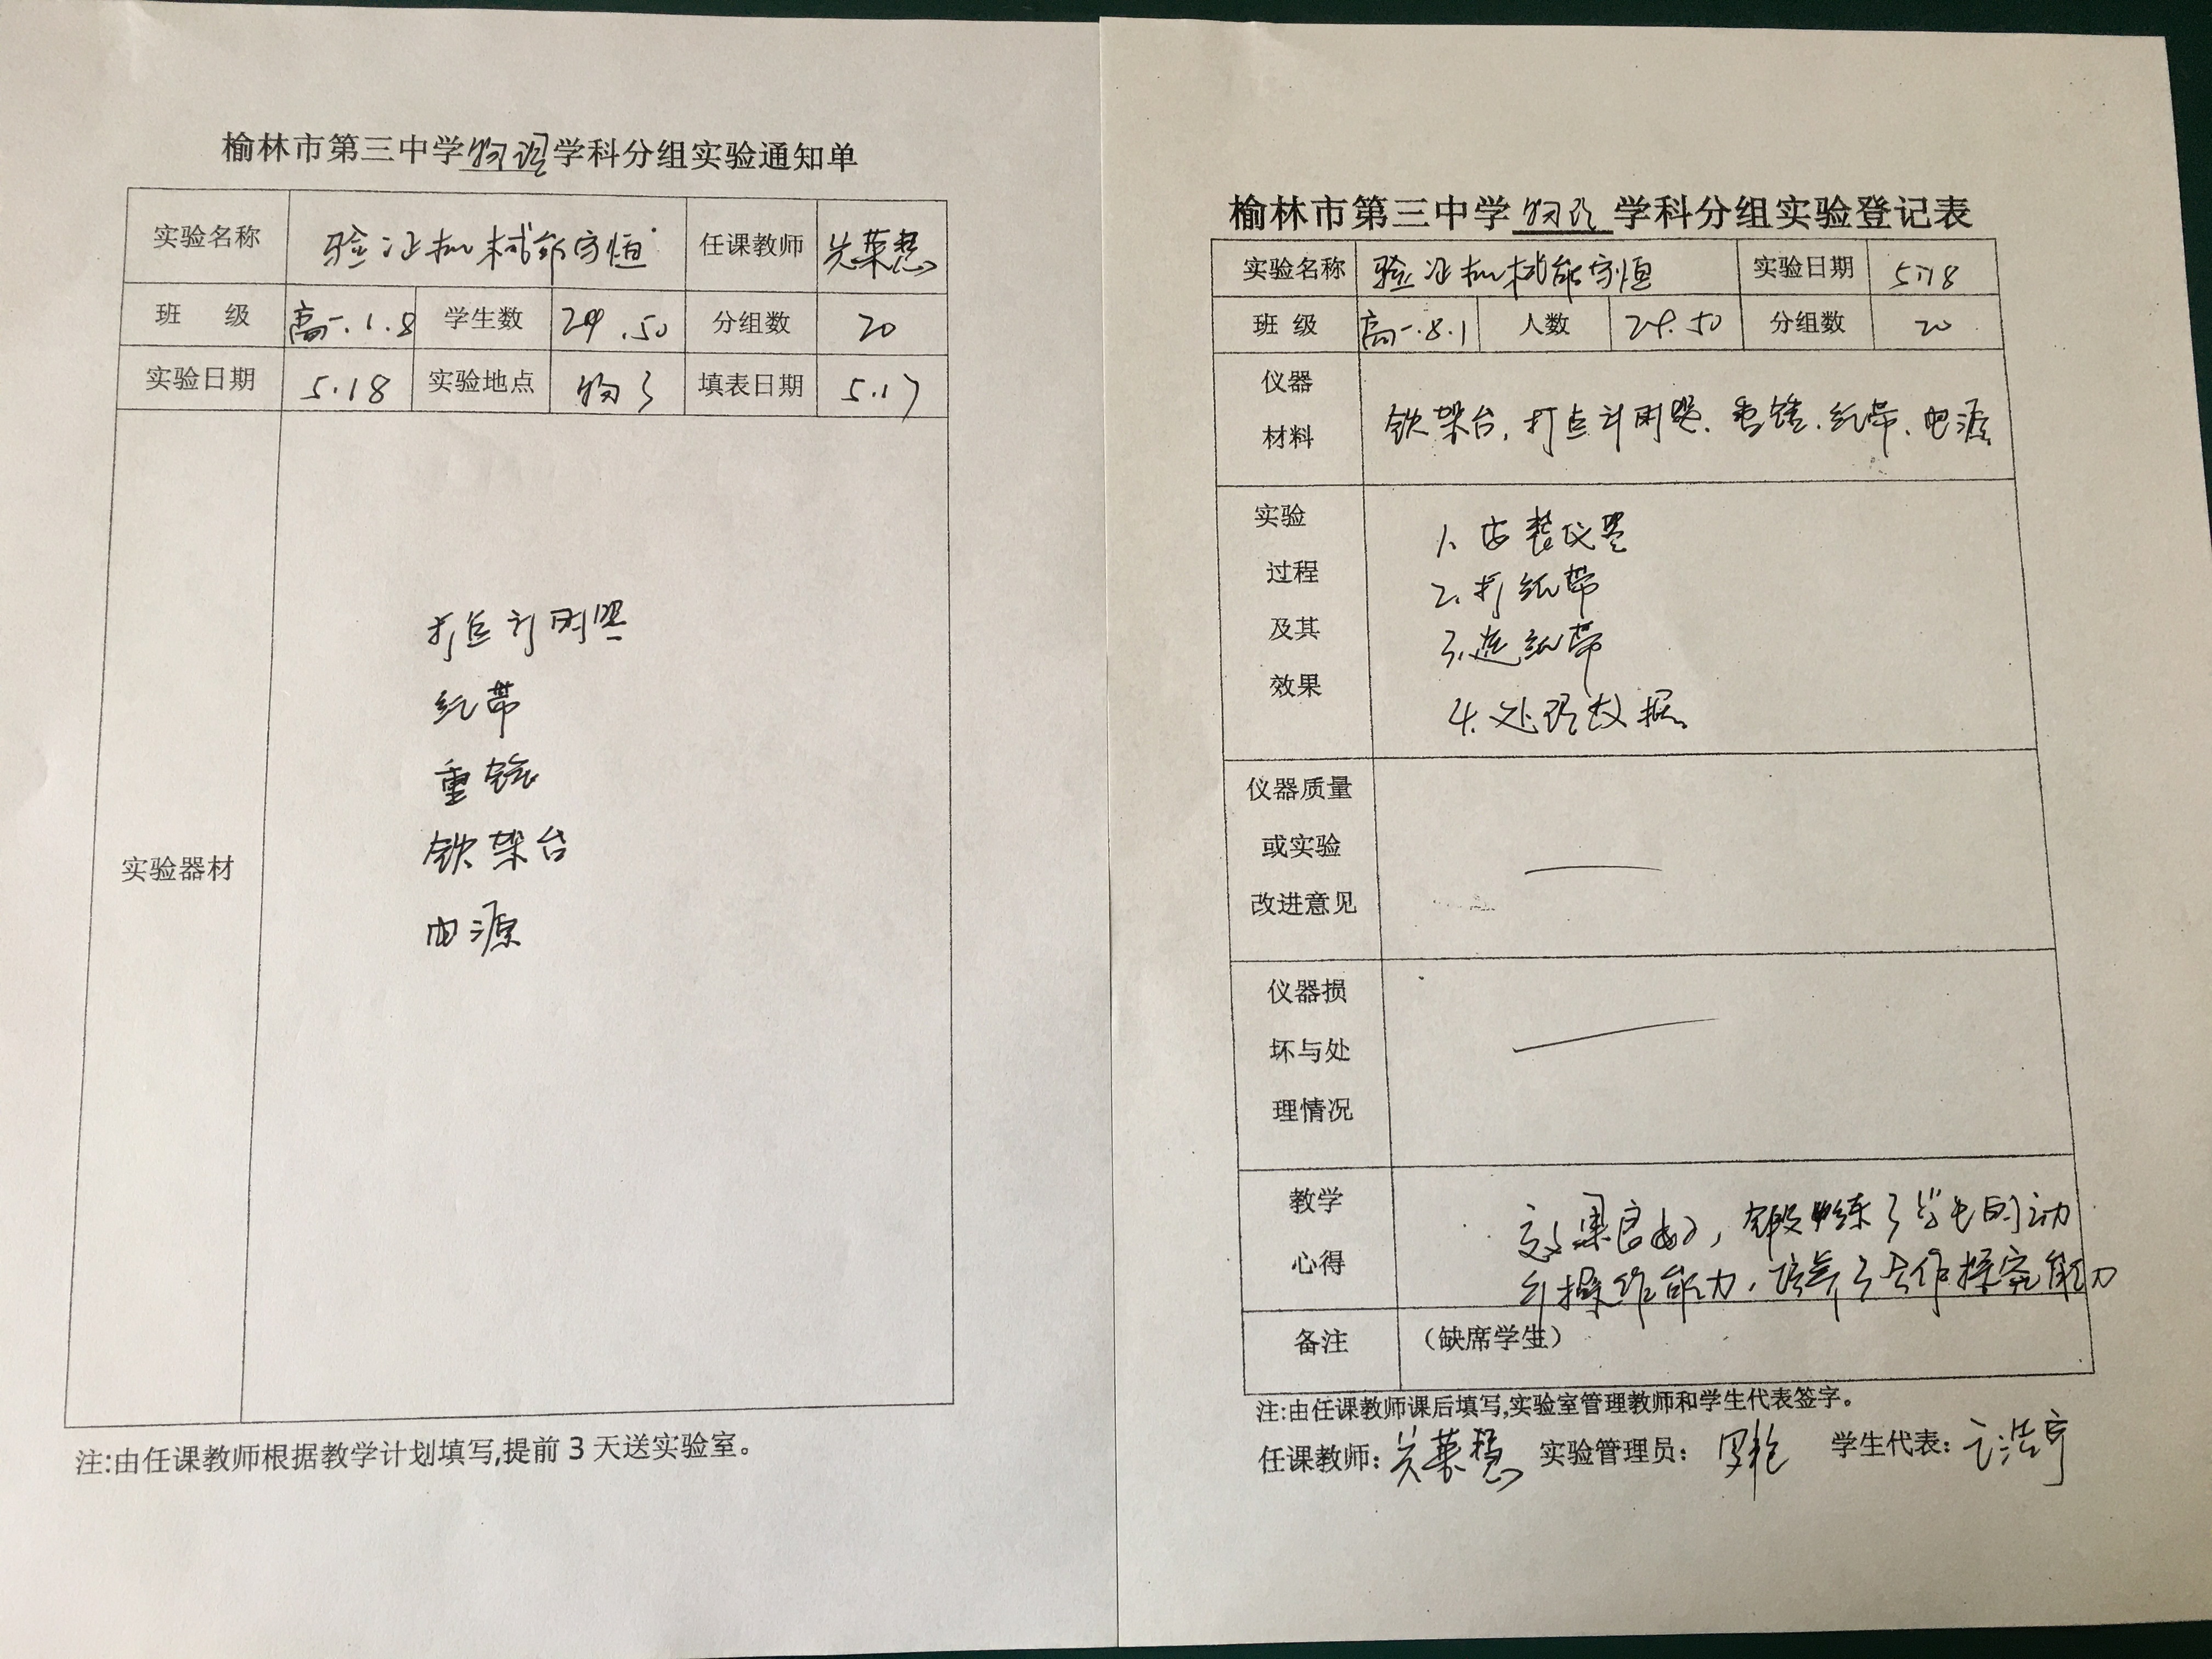 榆林市第三中学物理学科分组实验通知单
实验名称 验证机械能守恒 任课教师
班 级 高一.1.8 学生数 .50 分组数 20
实验日期 5.18 实验地点 物3 填表日期 5.17
实验器材
打点计时器
纸带
重锤
铁架台
电源
注:由任课教师根据教学计划填写,提前 3 天送实验室。
榆林市第三中学物理学科分组实验登记表
实验名称 验证机械能守恒 实验日期 5.18
班 级 高一.8.1 人数 .50 分组数 20
仪器
材料
铁架台,打点计时器、重锤.纸带.电源
实验
过程
及其
效果
1. 安装仪器
2. 打纸带
3.选纸带
4.处理数据
仪器质量
或实验
改进意见
仪器损
坏与处
理情况
教学
心得
效果良好,锻炼了学生的动
手操作能力,培养了合作探究能力
备注 (缺席学生)
注:由任课教师课后填写,实验室管理教师和学生代表签字。
任课教师: 实验管理员: 学生代表: